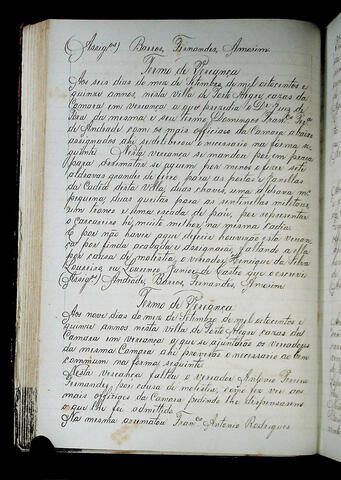 (Assigdos) Barros, Fernandes, Amorim.
Termo de Verança
Aos seis dias do mez de Setembro de mil oitocentos e
quinze annos, nesta villa de Porto Alegre cazas da
Camara em verança a que prezidio o Dr. Juiz de
Fora da mesma e seu termo Domingos Franco
de Andrade com os mais officiaes da Camara abaixo
assignados ahi se deliberou o necessario na forma se-
guinte. Nesta verança se mandou por em praça
para arrematar se a quem por menos o fizer sete
aldravas grandes de ferro para as portas e janellas
da Cadeia desta villa, duas chaves, uma aldrava mais
pequena, duas guaritas para as sentinellas militares
um tronco e uma escada de páo, por representar
o carcereiro ser muito milher na mesma Cadia.
E por não haver que deferir houverão esta veran-
ça por finda acabada e assignarão, faltando a ella
por cauza de molestia, o vereador Henrique da Silva
Loureiro eu Lourenço Junior de Castro que o escrevi
(Assigdos) Andrade, Barros, Fernandes, Amorim
Termo de Verança
Aos nove dias do mez de Setembro de mil oitocentos e
quinze annos nesta villa de Porto Alegre cazas da
Camara em verança a que se ajuntárão os vereadores
da mesma Campra ahi provérão o necessario ao bem
commum na forma seguinte.
Nesta verança faltou o vereador Antonio Pereira
Fernandes, por cauza de molestia, cujo fez ver aos
mais officiaes da Camara pedindo lhe dispensassem
o que lhe foi admittido.
Na mesma arrematou Franco Antonio Rodrigues